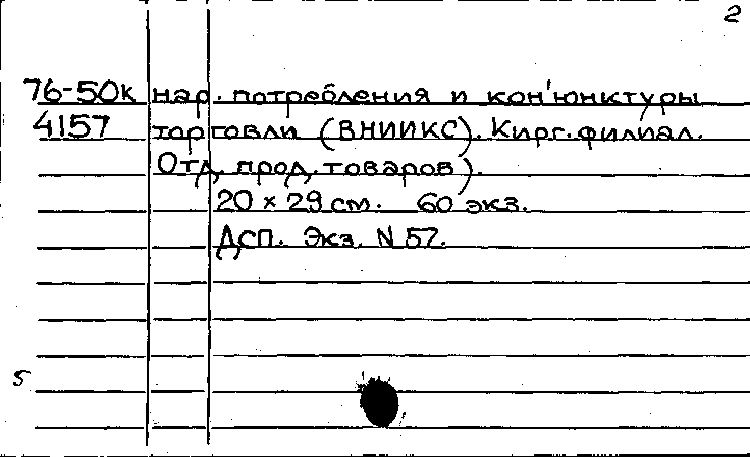 2
76-50к нар. потребления и кон'юнктуры
4157 торговли (ВНИИКС). Кирг. филиал.
Отд. прод. товаров).
20 × 29 см. 60 экз.
ДСП. Экз. N 57.
5